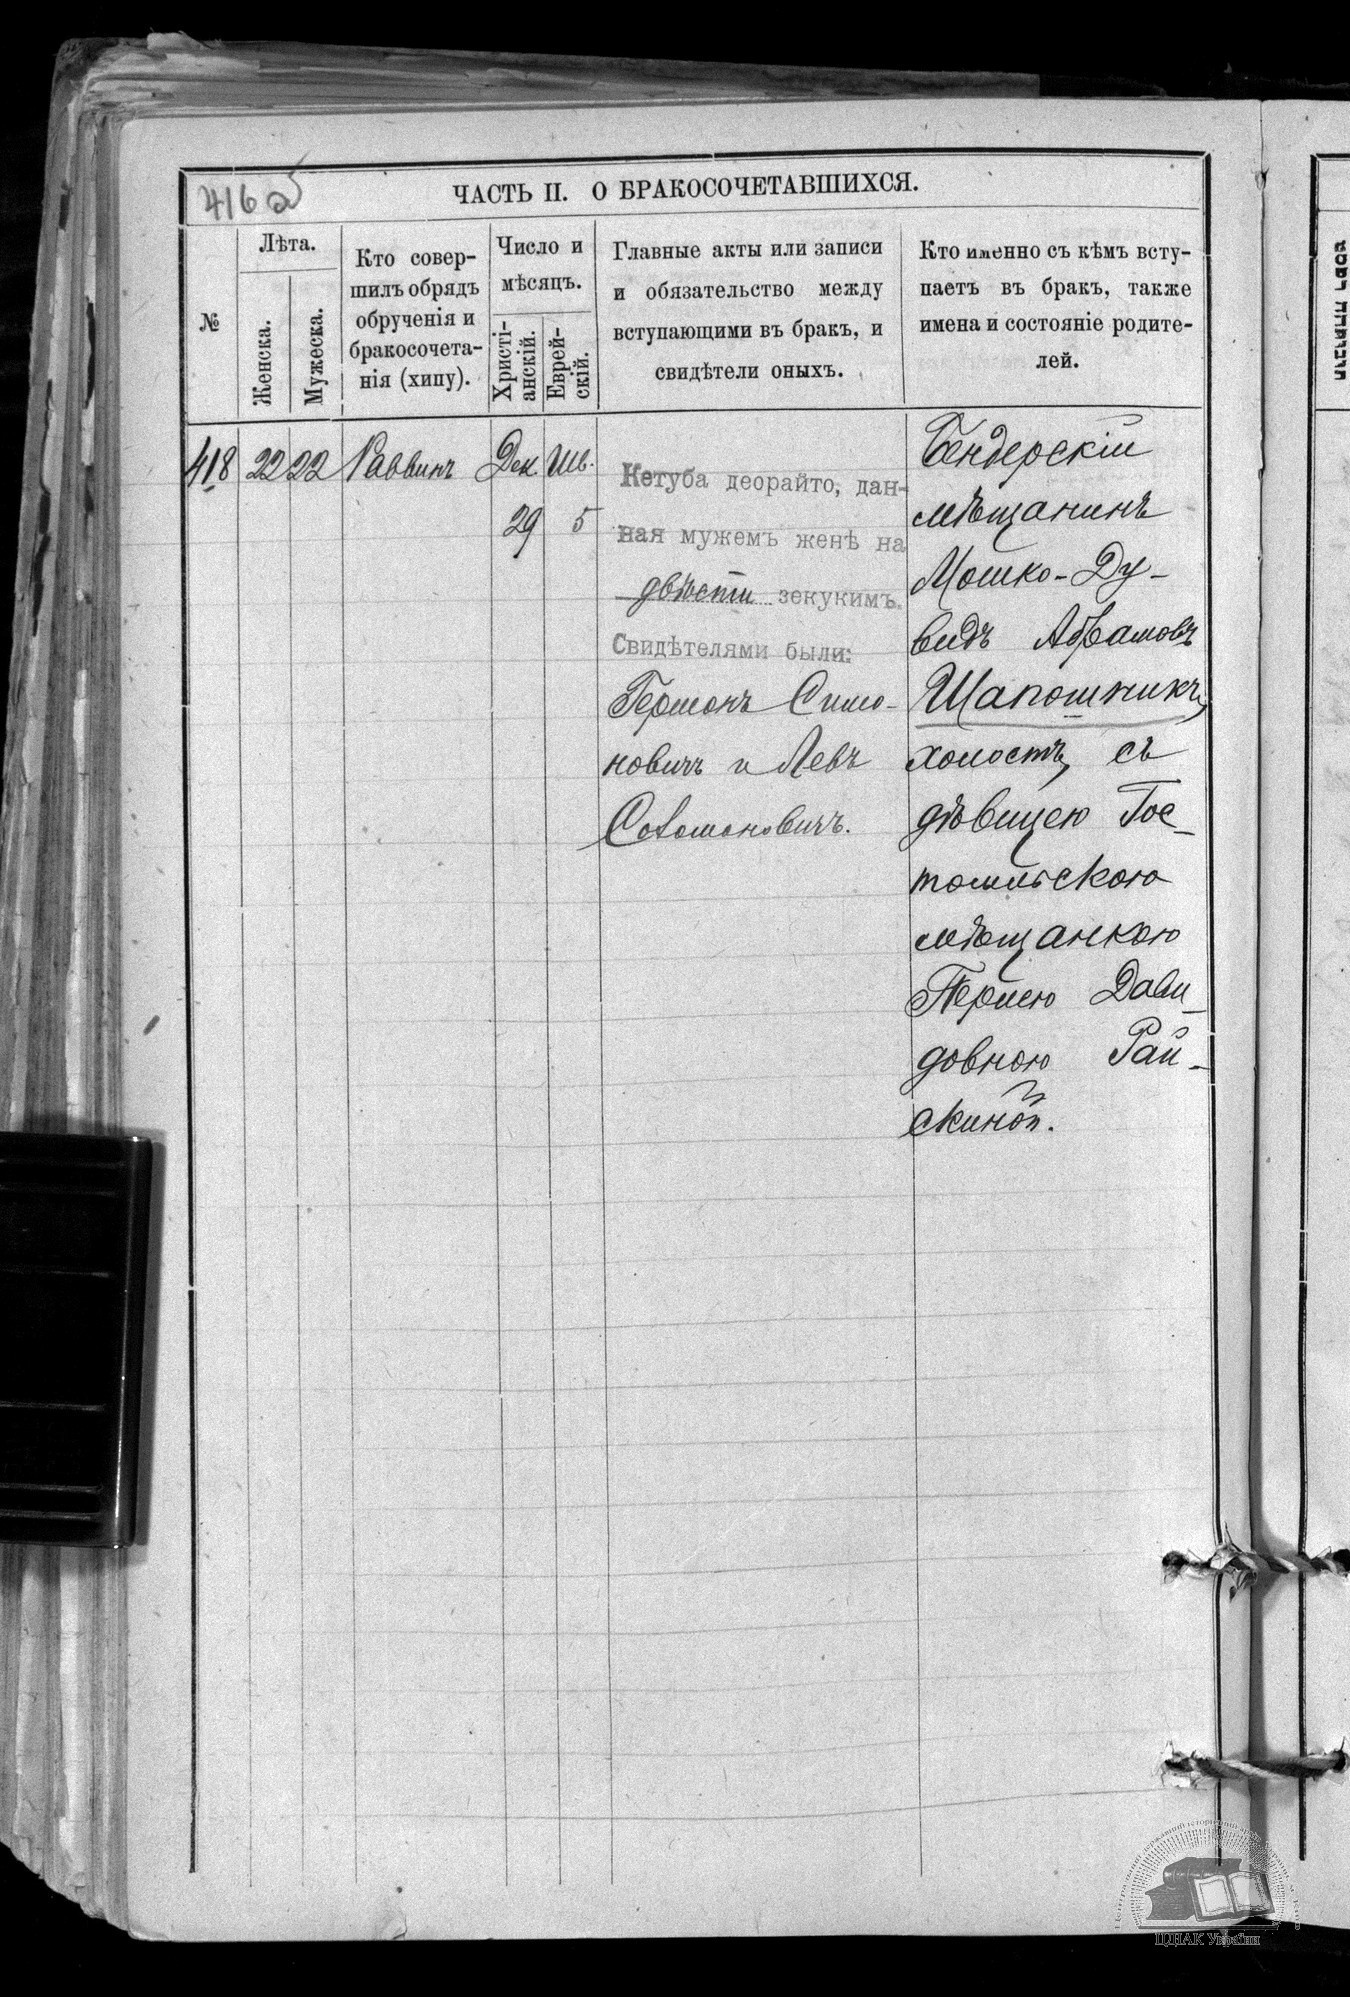 416 об
ЧАСТЬ II. О БРАКОСОЧЕТАВШИХСЯ.
№
Лѣта.
Женска.
Мужеска.
Кто совер-
шилъ обрядъ
обрученія и
бракосочета-
нія (хипу).
Число и
мѣсяцъ.
Христі-
анскій.
Еврей-
скій.
Главные акты или записи
и обязательство между
вступающими въ бракъ, и
свидѣтели оныхъ.
Кто именно съ кѣмъ всту-
паетъ въ бракъ, также
имена и состояніе родите-
лей.
418 22 22 Раввинъ Дек. Шв.
29 5
Кетуба деорайто, дан-
ная мужемъ женѣ на
двѣсти зекукимъ.
Свидѣтелями были:
Гершонъ Симо-
новичъ и Левъ
Соломоновичъ.
Бендерскій
мѣщанинъ
Мошко-Ду-
видъ Абрамовъ
Шапошникъ,
холостъ, съ
дѣвицею Гос-
томльскою
мѣщанкою
Перлею Дави-
довною Рай-
скиной.
ЦДІАК України